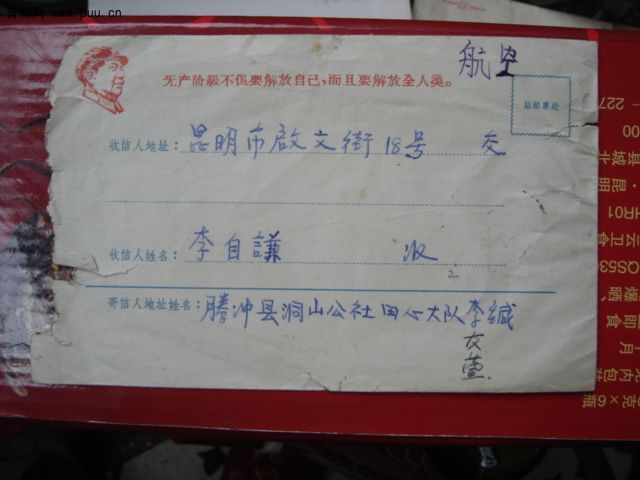 www.puu.cn
航空
无产阶级不但要解放自己，而且要解放全人类。
贴邮票处
收信人地址：昆明市啟文街18号 交
收信人姓名：李自謙 收
寄信人地址姓名：腾冲县洞山公社田心大队李缄
友萱